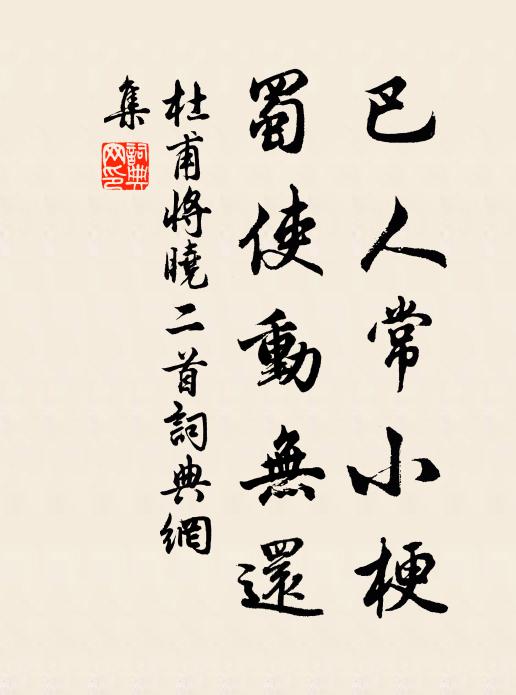 巴人常小梗
蜀使動無還
杜甫將曉二首詞典網
集
詞典
网印